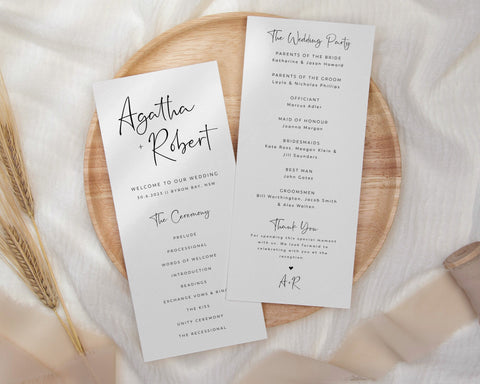 Agatha
+ Robert
WELCOME TO OUR WEDDING
30.6.2023 // BYRON BAY, NSW
The Ceremony
PRELUDE
PROCESSIONAL
WORDS OF WELCOME
INTRODUCTION
READINGS
EXCHANGE VOWS & RINGS
THE KISS
UNITY CEREMONY
THE RECESSIONAL
The Wedding Party
PARENTS OF THE BRIDE
Katherine & Jason Howard
PARENTS OF THE GROOM
Layla & Nicholas Phillips
OFFICIANT
Marcus Adler
MAID OF HONOUR
Joanna Morgan
BRIDESMAIDS
Kate Ross, Meegan Klein &
Jill Saunders
BEST MAN
John Gates
GROOMSMEN
Bill Worthington, Jacob Smith
& Alex Walten
Thank You
For spending this special moment
with us. We look forward to
celebrating with you at the
reception
A+R